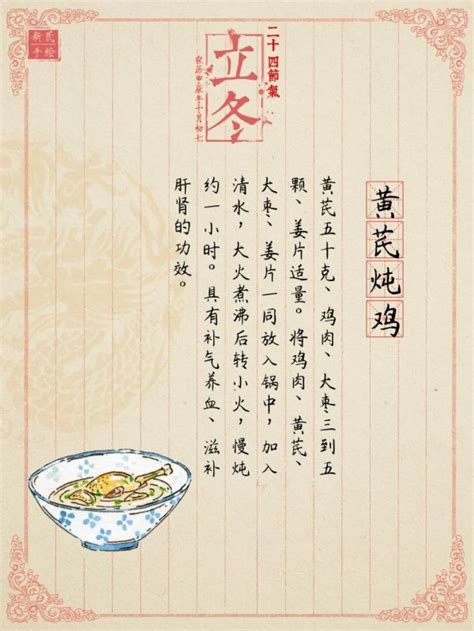 新民
手绘
二十四節氣
立冬
农历甲辰年十月初七
黄芪炖鸡
黄芪五十克、鸡肉、大枣三到五
颗、姜片适量。将鸡肉、黄芪、
大枣、姜片一同放入锅中，加入
清水，大火煮沸后转小火，慢炖
约一小时。具有补气养血、滋补
肝肾的功效。